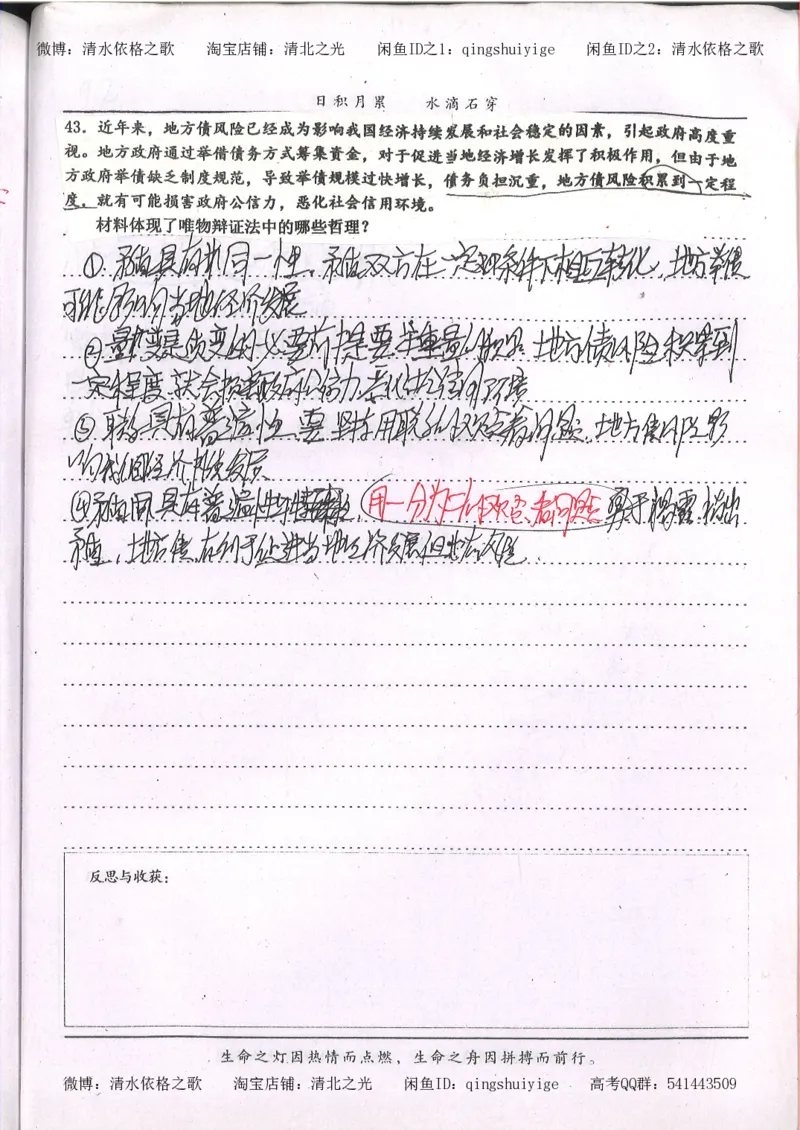 微博：清水依格之歌 淘宝店铺：清北之光 闲鱼ID之1：qingshuiyige 闲鱼ID之2：清水依格之歌
日积月累 水滴石穿
43．近年来，地方债风险已经成为影响我国经济持续发展和社会稳定的因素，引起政府高度重
视。地方政府通过举借债务方式筹集资金，对于促进当地经济增长发挥了积极作用，但由于地
方政府举债缺乏制度规范，导致举债规模过快增长，债务负担沉重，地方债风险积累到一定程
度，就有可能损害政府公信力，恶化社会信用环境。
材料体现了唯物辩证法中的哪些哲理？
①矛盾具有 同一性，矛盾双方在一定的条件下相互转化，地方举债
可能影响当地经济发展
②量变是质变的必要前提要注重量的积累 地方债风险积累到
一定程度 就会损害政府公信力 恶化社会信用环境
③联系具有普遍性 要坚持用联系的观点看问题 地方债风险影
响我国经济持续发展
④矛盾 具有普遍性 用一分为二的观点看问题 勇于揭露
矛盾，地方债有利于促进当地经济发展但也有风险
反思与收获：
生命之灯因热情而点燃，生命之舟因拼搏而前行。
微博：清水依格之歌 淘宝店铺：清北之光 闲鱼ID：qingshuiyige 高考QQ群：541443509